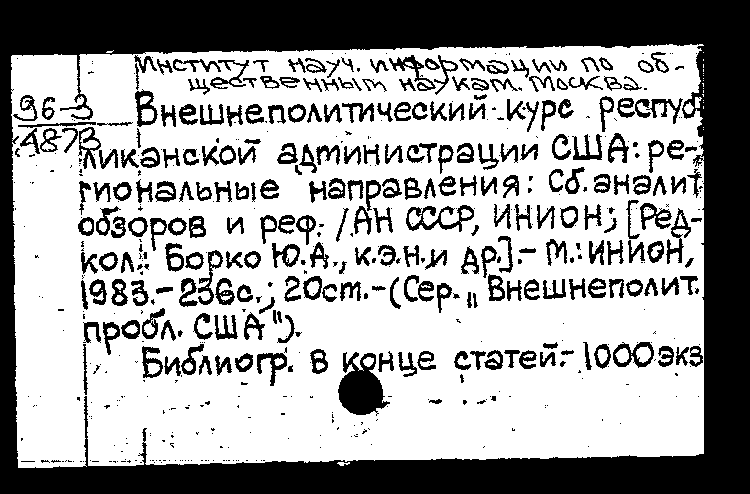 Институт науч. информации по об-
щественным наукам. Москва.
96-3
4873
Внешнеполитический курс респуб
ликанской администрации США: ре-
гиональные направления: Сб. аналит
обзоров и реф. / АН СССР, ИНИОН; [Ред-
кол.: Борко Ю.А., к.э.н. и др.].- М.: ИНИОН,
1983.- 236с.; 20см.-(Сер. „Внешнеполит.
пробл. США").
Библиогр. в конце статей.- 1000 экз